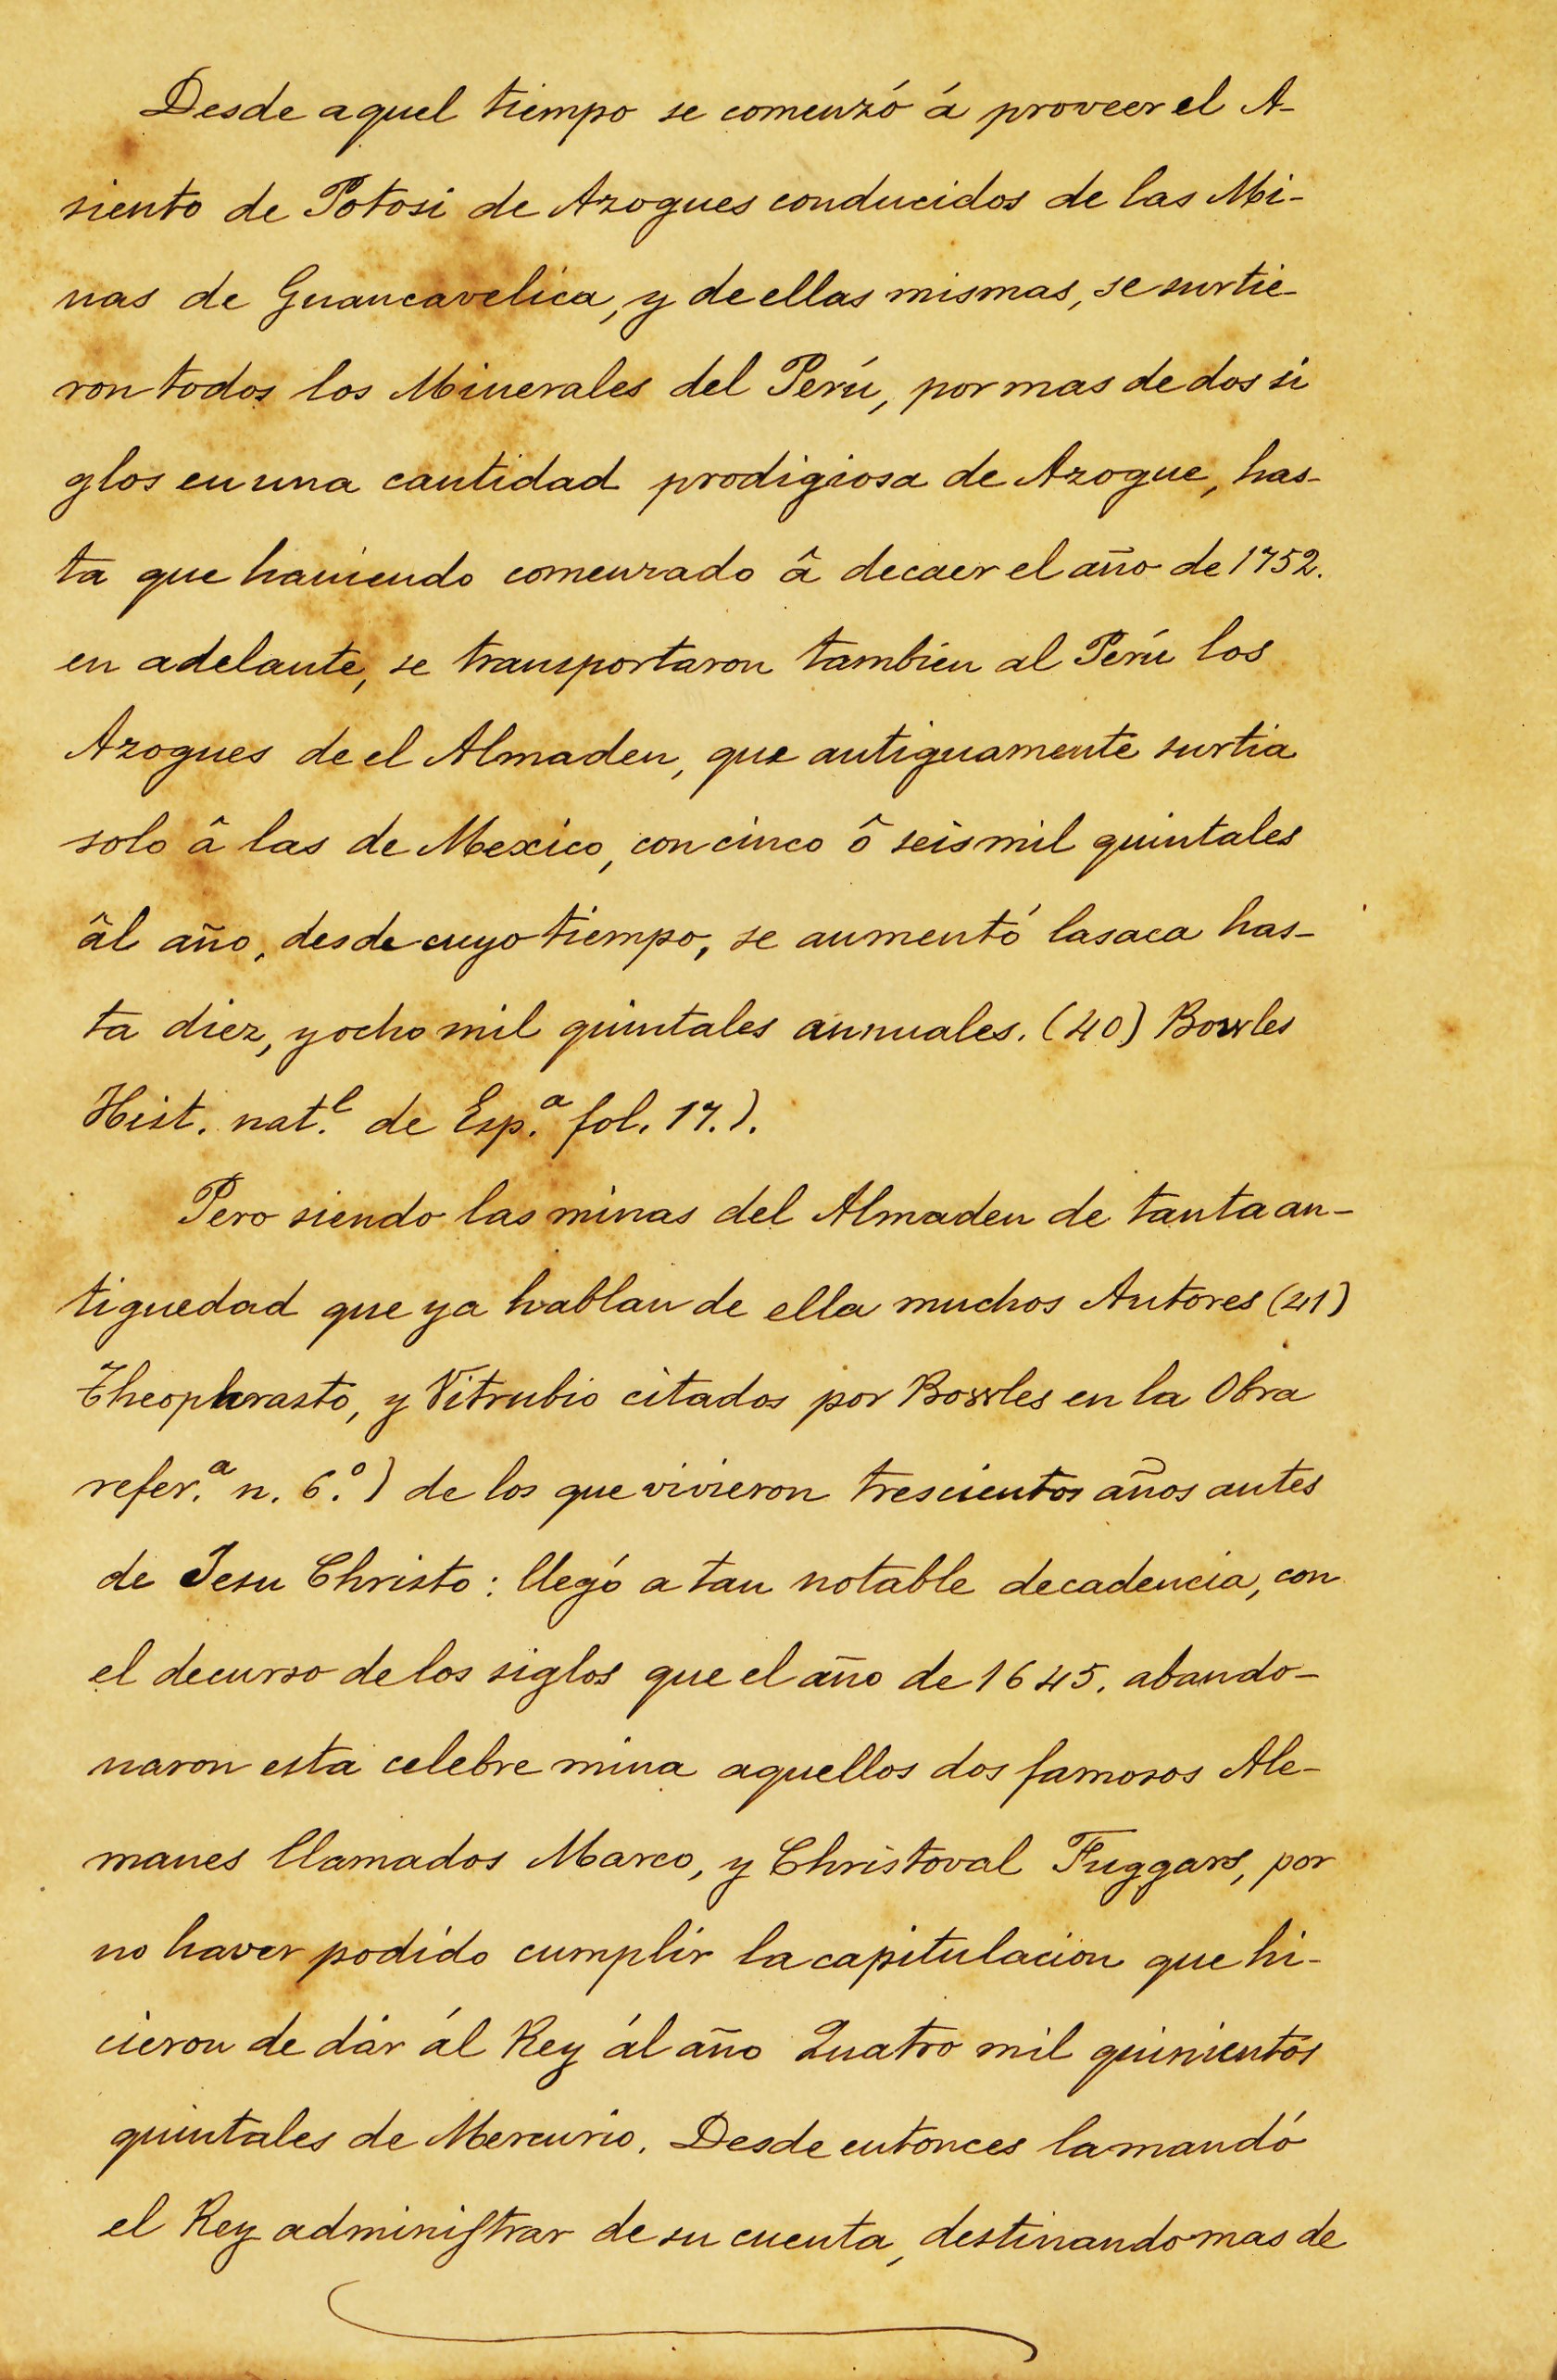 Desde aquel tiempo se comenzó á proveer el A-
siento de Potosi de Azogues conducidos de las Mi-
nas de Guancavelica, y de ellas mismas, se surtie-
ron todos los Minerales del Perú, por mas de dos si
glos en una cantidad prodigiosa de Azogue, has-
ta que haviendo comenzado â decaer el año de 1752.
en adelante, se transportaron tambien al Perú los
Azogues de el Almaden, que antiguamente surtia
solo â las de Mexico, con cinco ô seis mil quintales
âl año, desde cuyo tiempo, se aumentó la saca has-
ta diez, y ocho mil quintales annuales. (40) Bowles
Hist. nat.l de Esp.a fol. 17.).
Pero siendo las minas del Almaden de tanta an-
tiguedad que ya hablan de ella muchos Autores (41)
Theophrasto, y Vitrubio citados por Bowles en la Obra
refer.a n. 6.o) de los que vivieron trescientos años antes
de Jesu Christo: llegó a tan notable decadencia, con
el decurso de los siglos que el año de 1645. abando-
naron esta celebre mina aquellos dos famosos Ale-
manes llamados Marco, y Christoval Fuggars, por
no haver podido cumplir la capitulacion que hi-
cieron de dár ál Rey ál año Quatro mil quinientos
quintales de Mercurio. Desde entonces la mandó
el Rey adminiſtrar de su cuenta, destinando mas de